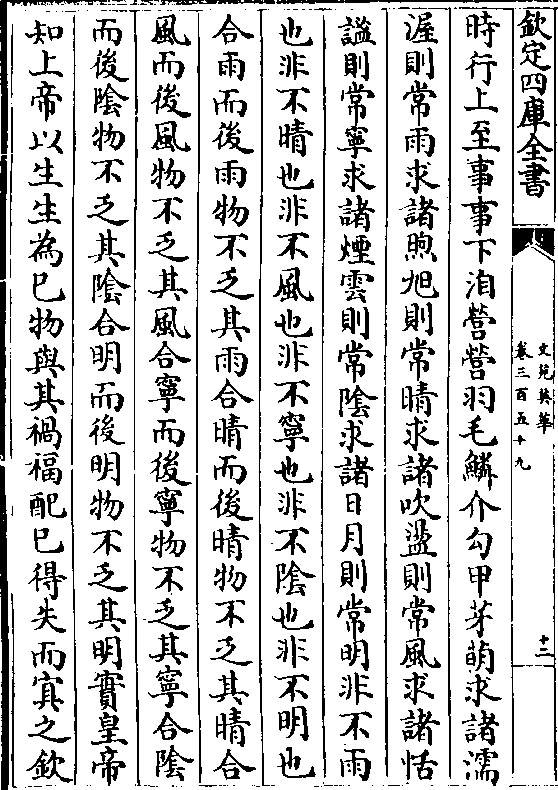 欽定四庫全書
文苑英華
卷三百五十九
十二
時行上至事事下洎營營羽毛鱗介勾甲芽萌求諸濡
渥則常雨求諸煦旭則常晴求諸吹盪則常風求諸恬
謐則常寧求諸煙雲則常陰求諸日月則常明非不雨
也非不晴也非不風也非不寧也非不陰也非不明也
合雨而後雨物不乏其雨合晴而後晴物不乏其晴合
風而後風物不乏其風合寧而後寧物不乏其寧合陰
而後陰物不乏其陰合明而後明物不乏其明實皇帝
知上帝以生生為已物與其禍福配已得失而寘之欽